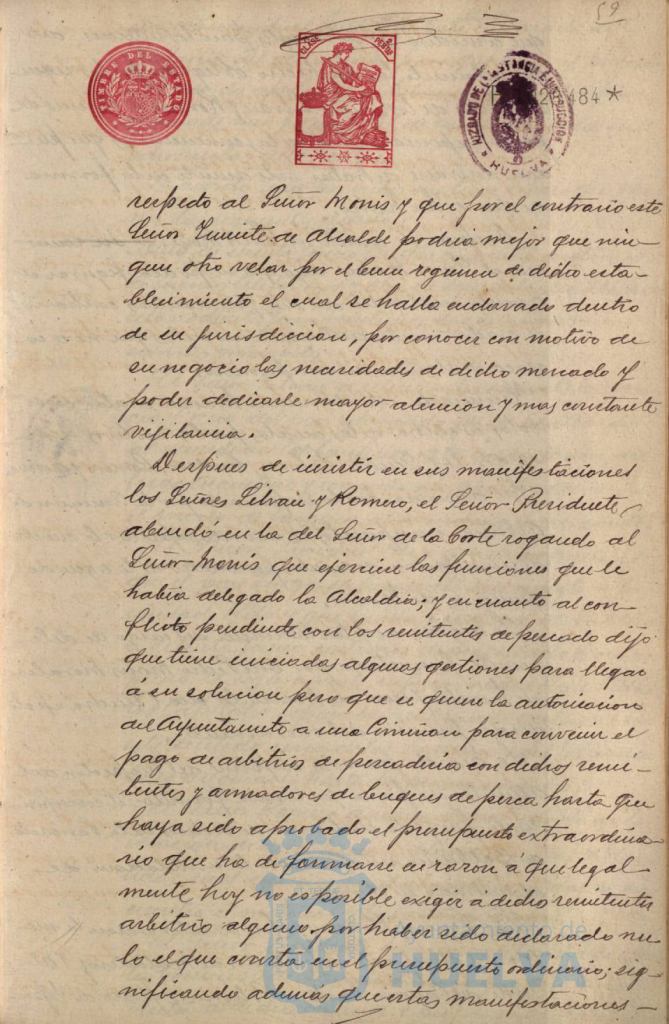 59
TIMBRE DEL ESTADO
CLASE
JUZGADO DE 1ª INSTANCIA E INSTRUCCION
HUELVA
484 *
respecto al Señor Monis y que por el contrario este
Señor Teniente de Alcalde podria mejor que nin-
gun otro velar por el buen regimen de dicho esta-
blecimiento el cual se halla enclavado dentro
de su jurisdiccion, por conocer con motivo de
su negocio las necesidades de dicho mercado y
poder dedicarle mayor atencion y mas constante
vigilancia.
Despues de insistir en sus manifestaciones
los Señores y Romero, el Señor Presidente,
abundó en la del Señor de la Corte rogando al
Señor Monis que ejerciese las funciones que le
habia delegado la Alcaldia; y en cuanto al con-
flicto pendiente con los remitentes de pescado dijo
que tiene iniciadas algunas gestiones para llegar
á su solucion pero que se quiere la autorizacion
del Ayuntamiento a una Comision para convenir el
pago de arbitrios de pescaderia con dichos remi-
tentes y armadores de buques de pesca hasta que
haya sido aprobado el presupuesto extraordina-
rio que ha de formarse en razon á que legal
mente hoy no es posible exigir á dichos remitentes
arbitrio alguno por haber sido declarado nu-
lo el que consta en el presupuesto ordinario; sig-
nificando además que estas manifestaciones-
Ayuntamiento de
HUELVA